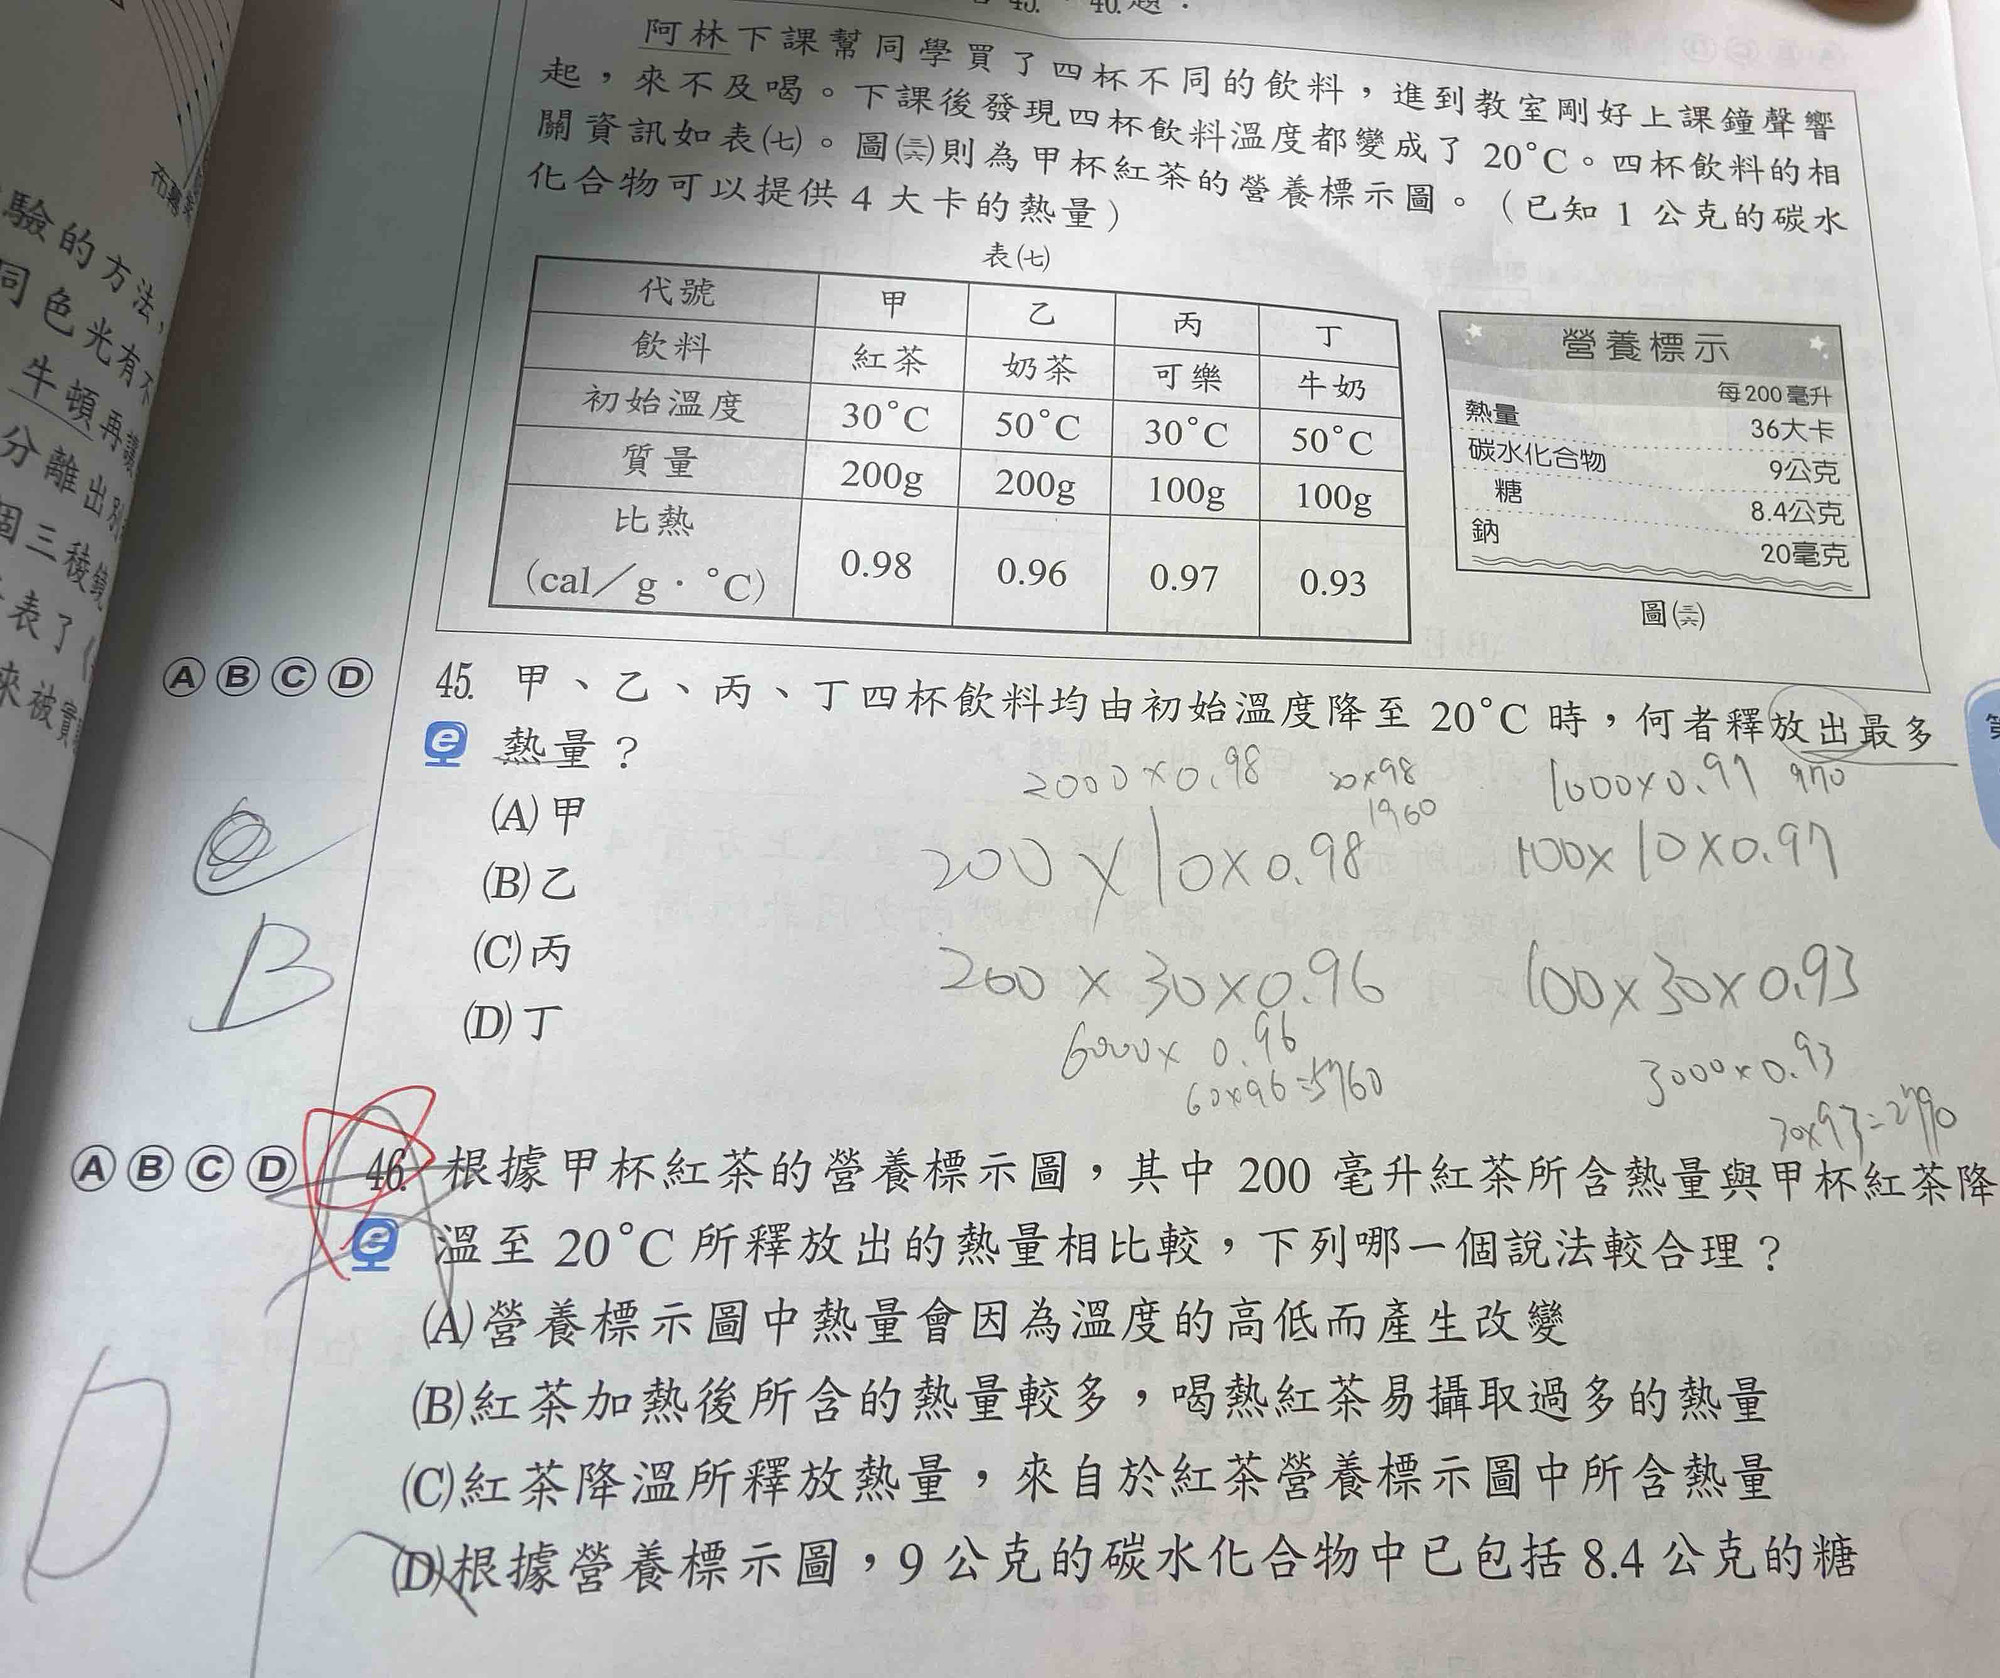 阿林下課幫同學買了四杯不同的飲料，進到教室剛好上課鐘聲響
起，來不及喝。下課後發現四杯飲料溫度都變成了 20°C。四杯飲料的相
關資訊如表(七)。圖(三六)則為甲杯紅茶的營養標示圖。（已知 1 公克的碳水
化合物可以提供 4 大卡的熱量）
表(七)
代號 甲 乙 丙 丁
飲料 紅茶 奶茶 可樂 牛奶
初始溫度 30°C 50°C 30°C 50°C
質量 200g 200g 100g 100g
比熱
(cal／g．°C) 0.98 0.96 0.97 0.93
營養標示
每200毫升
熱量 36大卡
碳水化合物 9公克
糖 8.4公克
鈉 20毫克
圖(三六)
Ⓐ Ⓑ Ⓒ Ⓓ 45. 甲、乙、丙、丁四杯飲料均由初始溫度降至 20°C 時，何者釋放出最多
熱量？
(A)甲
(B)乙
(C)丙
(D)丁
2000×0.98
20×98
1960
1000×0.97 970
200×10×0.98
100×10×0.97
B
200×30×0.96
100×30×0.93
6000×0.96
60×96=5760
3000×0.93
30×93=2790
Ⓐ Ⓑ Ⓒ Ⓓ 46. 根據甲杯紅茶的營養標示圖，其中 200 毫升紅茶所含熱量與甲杯紅茶降
溫至 20°C 所釋放出的熱量相比較，下列哪一個說法較合理？
(A)營養標示圖中熱量會因為溫度的高低而產生改變
(B)紅茶加熱後所含的熱量較多，喝熱紅茶易攝取過多的熱量
(C)紅茶降溫所釋放熱量，來自於紅茶營養標示圖中所含熱量
(D)根據營養標示圖，9 公克的碳水化合物中已包括 8.4 公克的糖
D
驗的方法，
同色光有不
牛頓再讓
分離出別
個三稜鏡
表了
來被實